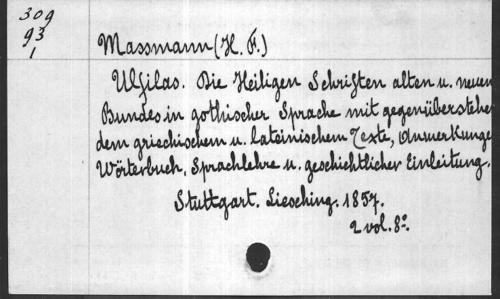 309
93
1
Massmann (H. F.)
Ulfilas. Die Heiligen Schriften alten u. neuen
Bundes in gothischer Sprache mit gegenüberstehen
dem griechischem u. lateinischem Texte, Anmerkunge
Wörterbuch, Sprachlehre u. geschichtlicher Einleitung.
Stuttgart. Liesching. 1857.
2 vol. 8º.